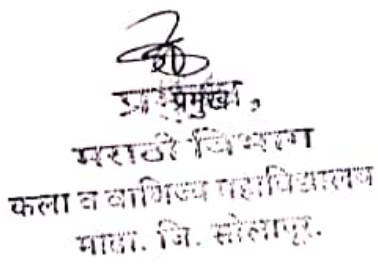 प्रमुख,
मराठी विभाग
कला व वाणिज्य महाविद्यालय
माढा. जि. सोलापूर.